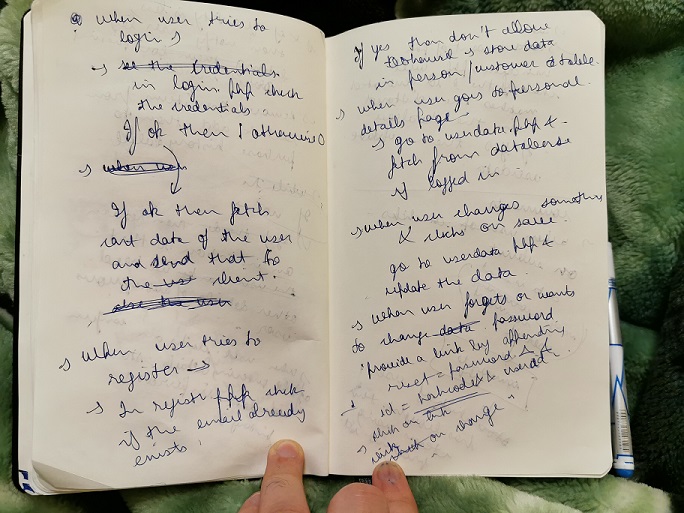 when user tries to
login →
→ in login.php check
the credentials
If ok then 1 otherwise 0
→ when
If ok then fetch
cart data of the user
and send that to
the client.
else the user
→ when user tries to
register →
→ In register php check
if the email already
exists.
If yes then don't allow
store data
in person/customer table.
→ when user goes to personal
details page
→ go to userdata.php &
fetch from database
if logged in
→ when user changes something
& clicks on save.
go to userdata php &
update the data.
→ when user forgets or wants
to change data password
provide a link by appending
reset = password &
click on link
click on change